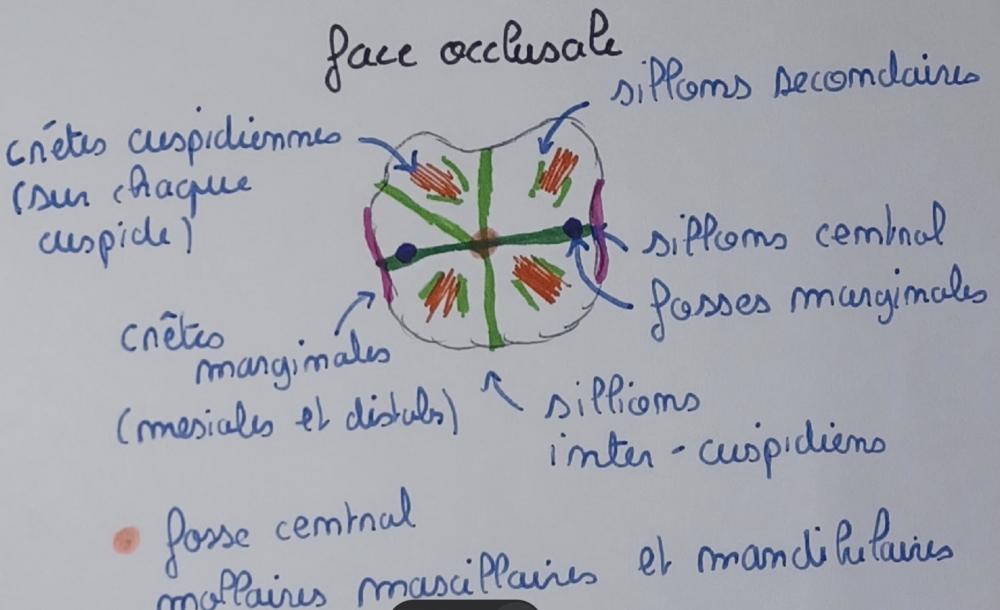 face occlusale
sillons secondaires
crêtes cuspidiennes
(sur chaque
cuspide)
sillons central
fosses marginales
crêtes
marginales
(mesiales et distales)
sillions
inter-cuspidiens
fosse central
mollaires mascillaires et mandilulaires